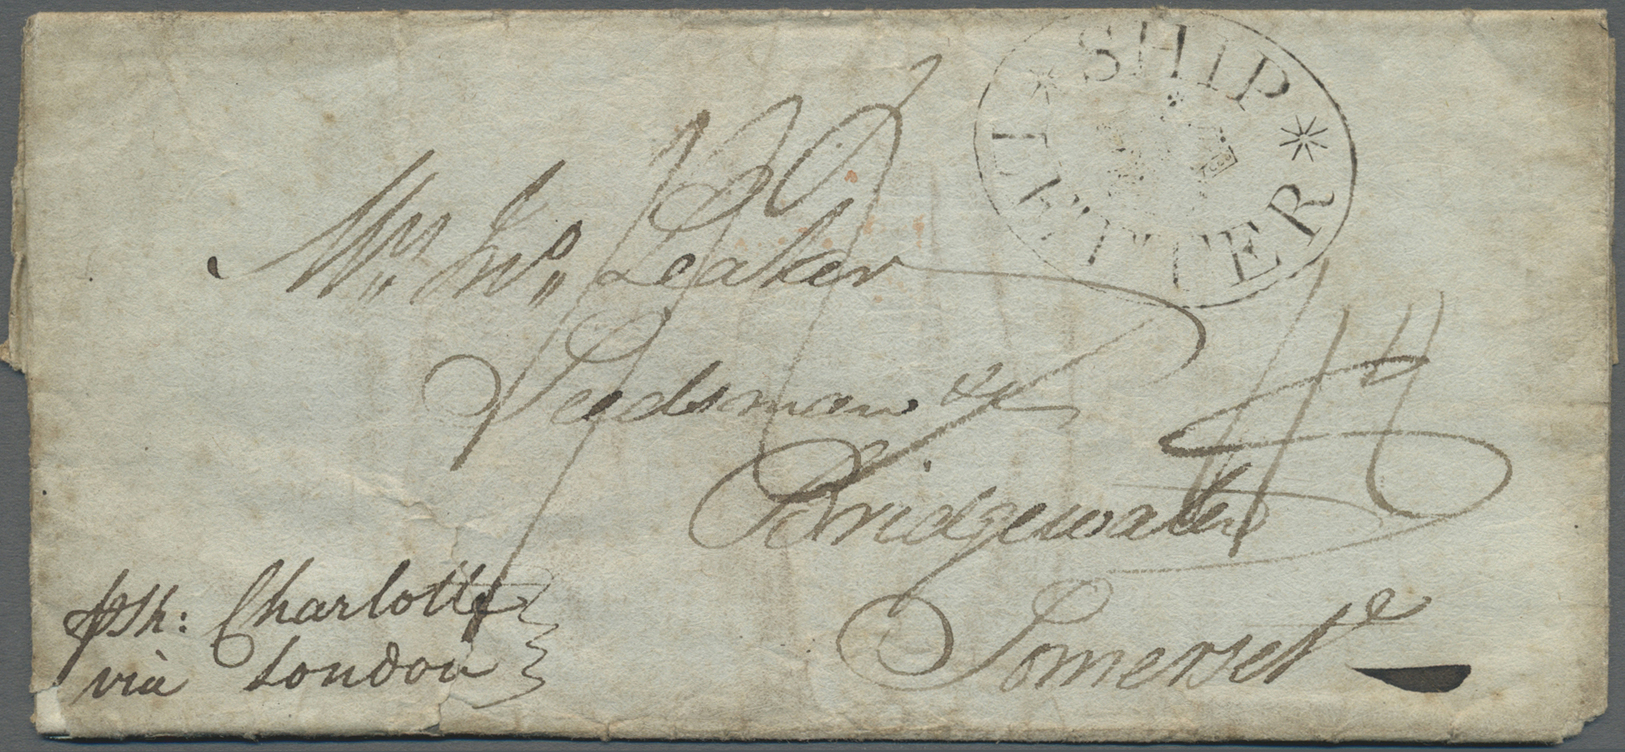 SHIP LETTER
Mr. Jno. Leaker
Seedsman &c
Bridgewater
Somerset
p Sh: Charlotte
via London